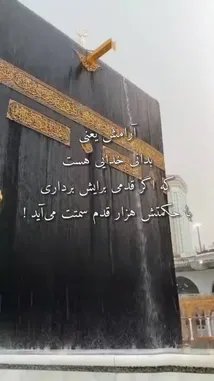 آرامش یعنی
بدانی خدایی هست
که اگر قدمی برایش برداری
با حکمتش هزار قدم سمتت می‌آید !